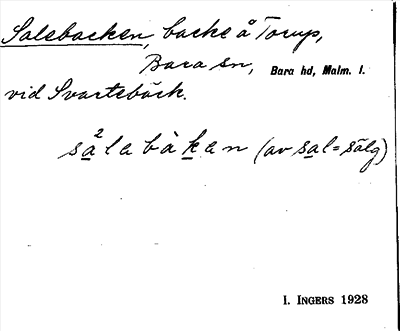 Salebacken, backe å Torup,
Bara sn, Bara hd, Malm. l.
vid Svartebäck.
sa²la bàkan (av sal=sälg)
I. INGERS 1928